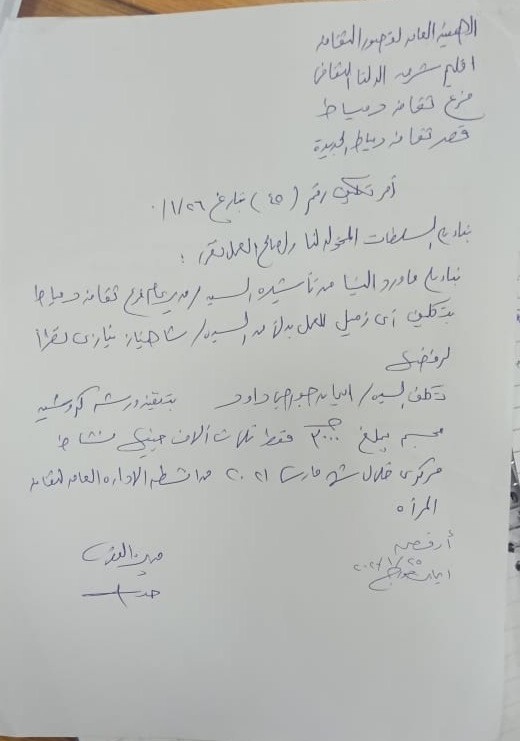 الهيئة العامه لقصور الثقافه
اقليم شرق الدلتا الثقافى
فرع ثقافة دمياط
قصر ثقافة دمياط الجديدة
أمر تكليف رقم (٤٥) بتاريخ ٢٦/١/
بناء على السلطات المخوله لنا ولصالح العمل تقرر :
بناء على ما ورد الينا من تأشيره السيد/ مدير عام فرع ثقافة دمياط
بتكليف أى زميل للعمل بدلا من السيده/ شاهيناز نيازى نظرا
لرفضها
تكلف السيده/ ايمان جورجى داود بتنفيذ ورشه كروشيه
مجسم بمبلغ ٣٠٠٠ فقط ثلاث ألاف جنيها نشاط
مركزى خلال شهر مارس ٢٠٢١ من انشطه الاداره العامه لثقافه
المرأه
أرفض
ايمان جورجى